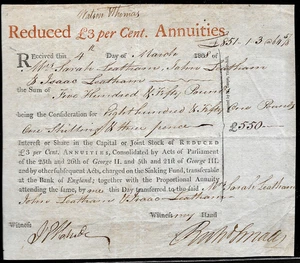 Reduced £3 per Cent. Annuities
Received this 4th Day of March
Mrs Sarah Leatham, John Leatham
& Isaac Leatham
the Sum of Five Hundred & Fifty Pounds
being the Consideration for Eight hundred & Fifty One Pounds
One Shilling & three pence £550
Interest or Share in the Capital or Joint Stock of Reduced
£3 per Cent. Annuities, Consolidated by Acts of Parliament
of the 25th and 26th of George II. and 5th and 21st of George III.
and by other subsequent Acts, charged on the Sinking Fund, transferable
at the Bank of England; together with the proportional Annuity attending
the same, by me this Day transferred to the said Mrs Sarah Leatham
John Leatham & Isaac Leatham
Witness my Hand
Witness